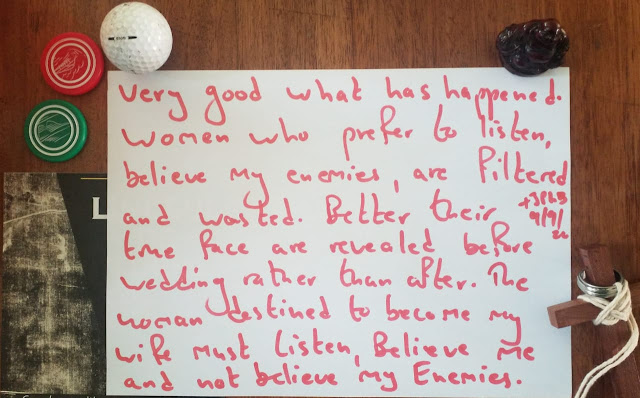 Very good what has happened.
Women who prefer to listen,
believe my enemies, are filtered
and wasted. Better their
true face are revealed before
wedding rather than after. The
woman destined to become my
wife must listen, Believe me
and not believe my Enemies.
9/9/
L